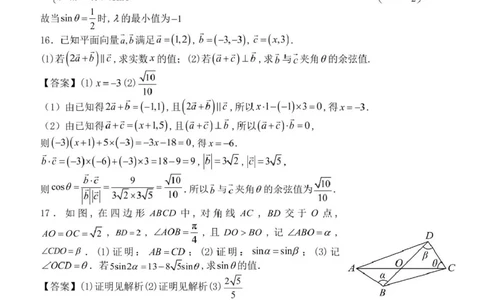 故当sinθ=1/2时,λ的最小值为−1
16.已知平面向量a⃗,b⃗满足a⃗=(1,2),b⃗=(−3,−3),c⃗=(x,3).
(1)若(2a⃗+b⃗)∥c⃗,求实数x的值;(2)若(a⃗+c⃗)⊥b⃗,求b⃗与c⃗夹角θ的余弦值.
【答案】(1) x=−3(2) √10/10
(1)由已知得2a⃗+b⃗=(−1,1),且(2a⃗+b⃗)∥c⃗,所以x·1−(−1)×3=0,得x=−3.
(2)由已知得a⃗+c⃗=(x+1,5),且(a⃗+c⃗)⊥b⃗,所以(a⃗+c⃗)·b⃗=0,
则(−3)(x+1)+5×(−3)=−3x−18=0,得x=−6.
b⃗·c⃗=(−3)×(−6)+(−3)×3=18−9=9,|b⃗|=3√2,|c⃗|=3√5,
则cosθ=b⃗·c⃗/|b⃗||c⃗|=9/(3√2×3√5)=√10/10,所以b⃗与c⃗夹角θ的余弦值为√10/10.
17. 如图,在四边形 ABCD 中,对角线 AC,BD 交于 O 点,
AO=OC=√2,BD=2,∠AOB=π/4,且 DO>BO,记∠ABO=α,
∠CDO=β.(1)证明:AB=CD;(2)证明:sinα=sinβ;(3)记
∠OCD=θ.若5sin2α=13−8√5sinθ,求sinθ的值.
【答案】(1)证明见解析(2)证明见解析(3) 2√5/5
D
β
A
O
θ
C
α
B